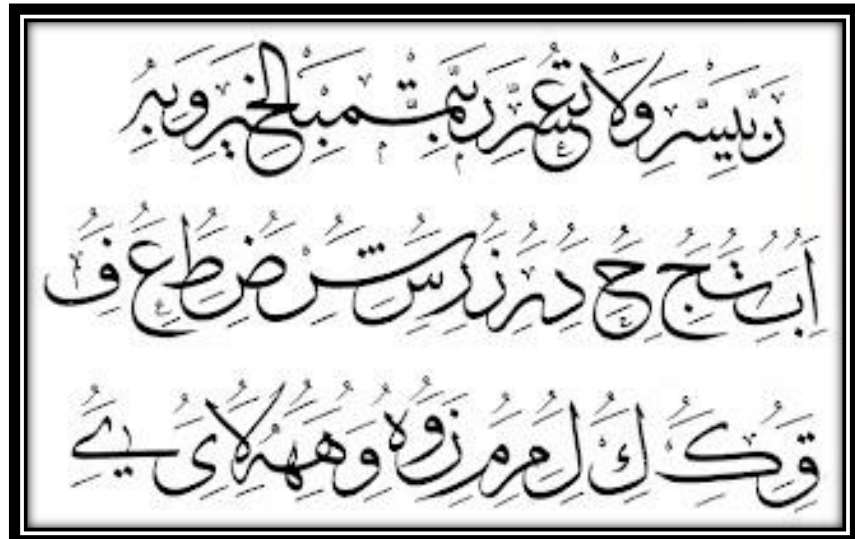 رَبِّ يَسِّرْ وَلَا تُعَسِّرْ رَبِّ تَمِّمْ بِالْخَيْرِ وَبِهِ
ا ب ت ج ح د ر ز س ش ض ط ع ف
ق ك ك ل م م ن و ه و ه ه لا ى ے